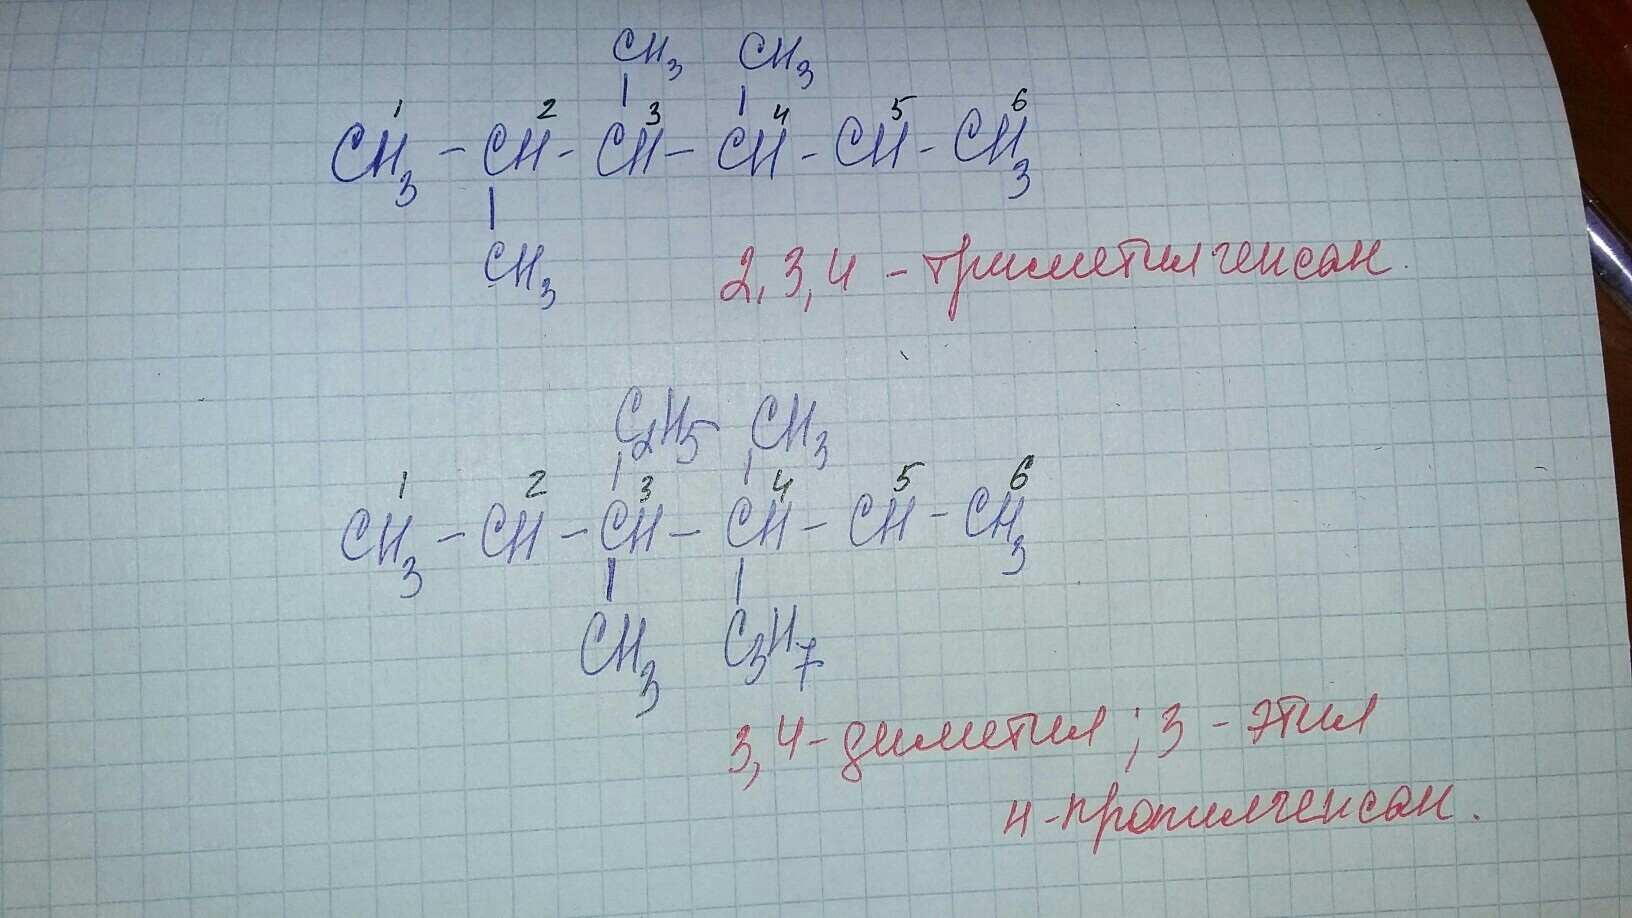 CH3 CH3
1 2 3 4 5 6
CH3 - CH - CH - CH - CH - CH3
CH3
2,3,4 - триметилгексан.
C2H5 CH3
1 2 3 4 5 6
CH3 - CH - CH - CH - CH - CH3
CH3 C3H7
3,4 - диметил ; 3 - этил
4 - пропилгексан.